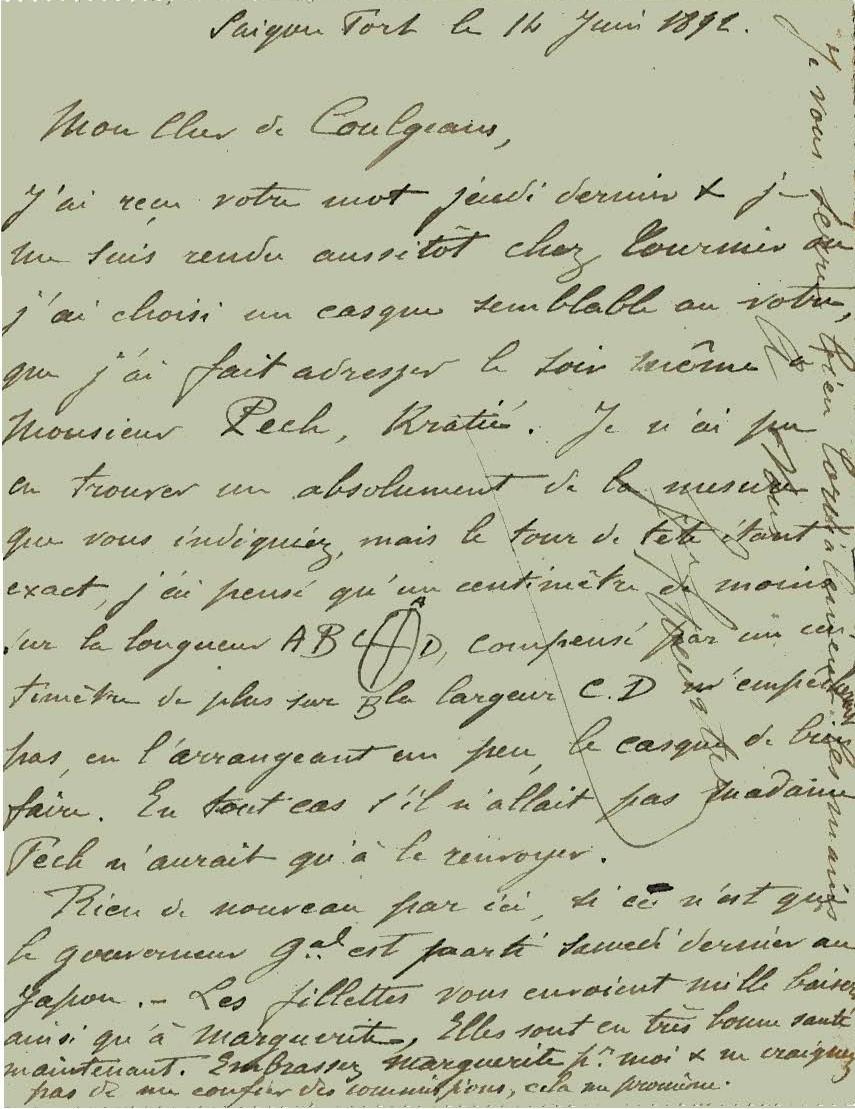 Saigon Port le 14 Juin 1892.
Mon cher de Coulgeans,
J'ai reçu votre mot jeudi dernier & je
me suis rendu aussitôt chez Courmier où
j'ai choisi un casque semblable au votre,
que j'ai fait adresser le soir même à
Monsieur Pech, Kratié. Je n'ai pu
en trouver un absolument de la mesure
que vous indiquiez, mais le tour de tête étant
exact, j'ai pensé qu'un centimètre de moins
sur la longueur AB
A
C D,
B
compensé par un cen
timètre de plus sur la largeur C.D n'empêcherait
pas, en l'arrangeant un peu, le casque de bien
faire. En tout cas s'il n'allait pas madame
Pech n'aurait qu'à le renvoyer.
Rien de nouveau par ici, si ce n'est que
le gouverneur Gal est paarti samedi dernier au
Japon. - Les fillettes vous envoient mille baisers
ainsi qu'à Marguerite, Elles sont en très bonne santé
maintenant. Embrassez Marguerite pr moi & ne craignez
pas de me confier des commissions, cela me promène.
Je vous serre bien cordialement les mains
A vous